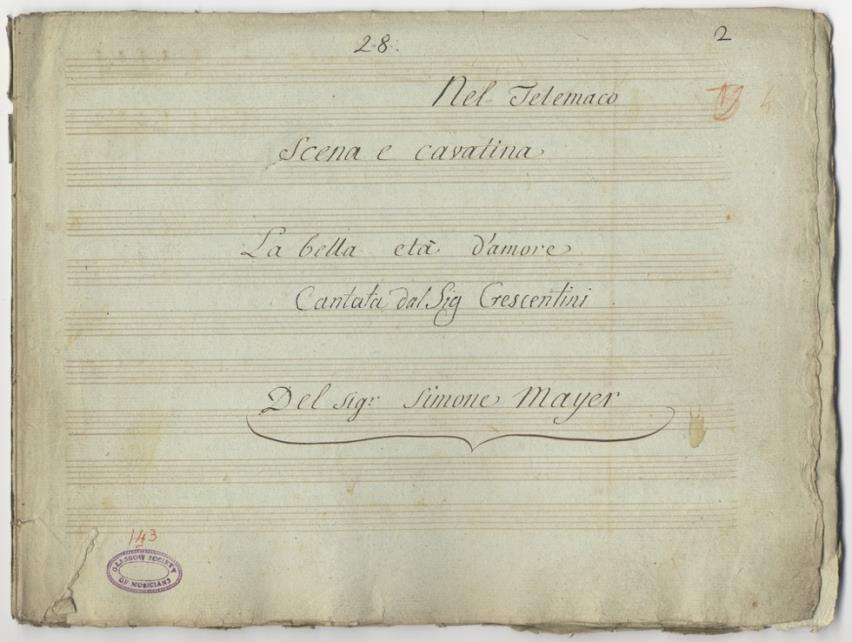 28.
2
Nel Telemaco
Scena e cavatina
La bella età d'amore
Cantata dal Sig Crescentini
Del Sigr Simone Mayer
143
GLASGOW SOCIETY
OF MUSICIANS